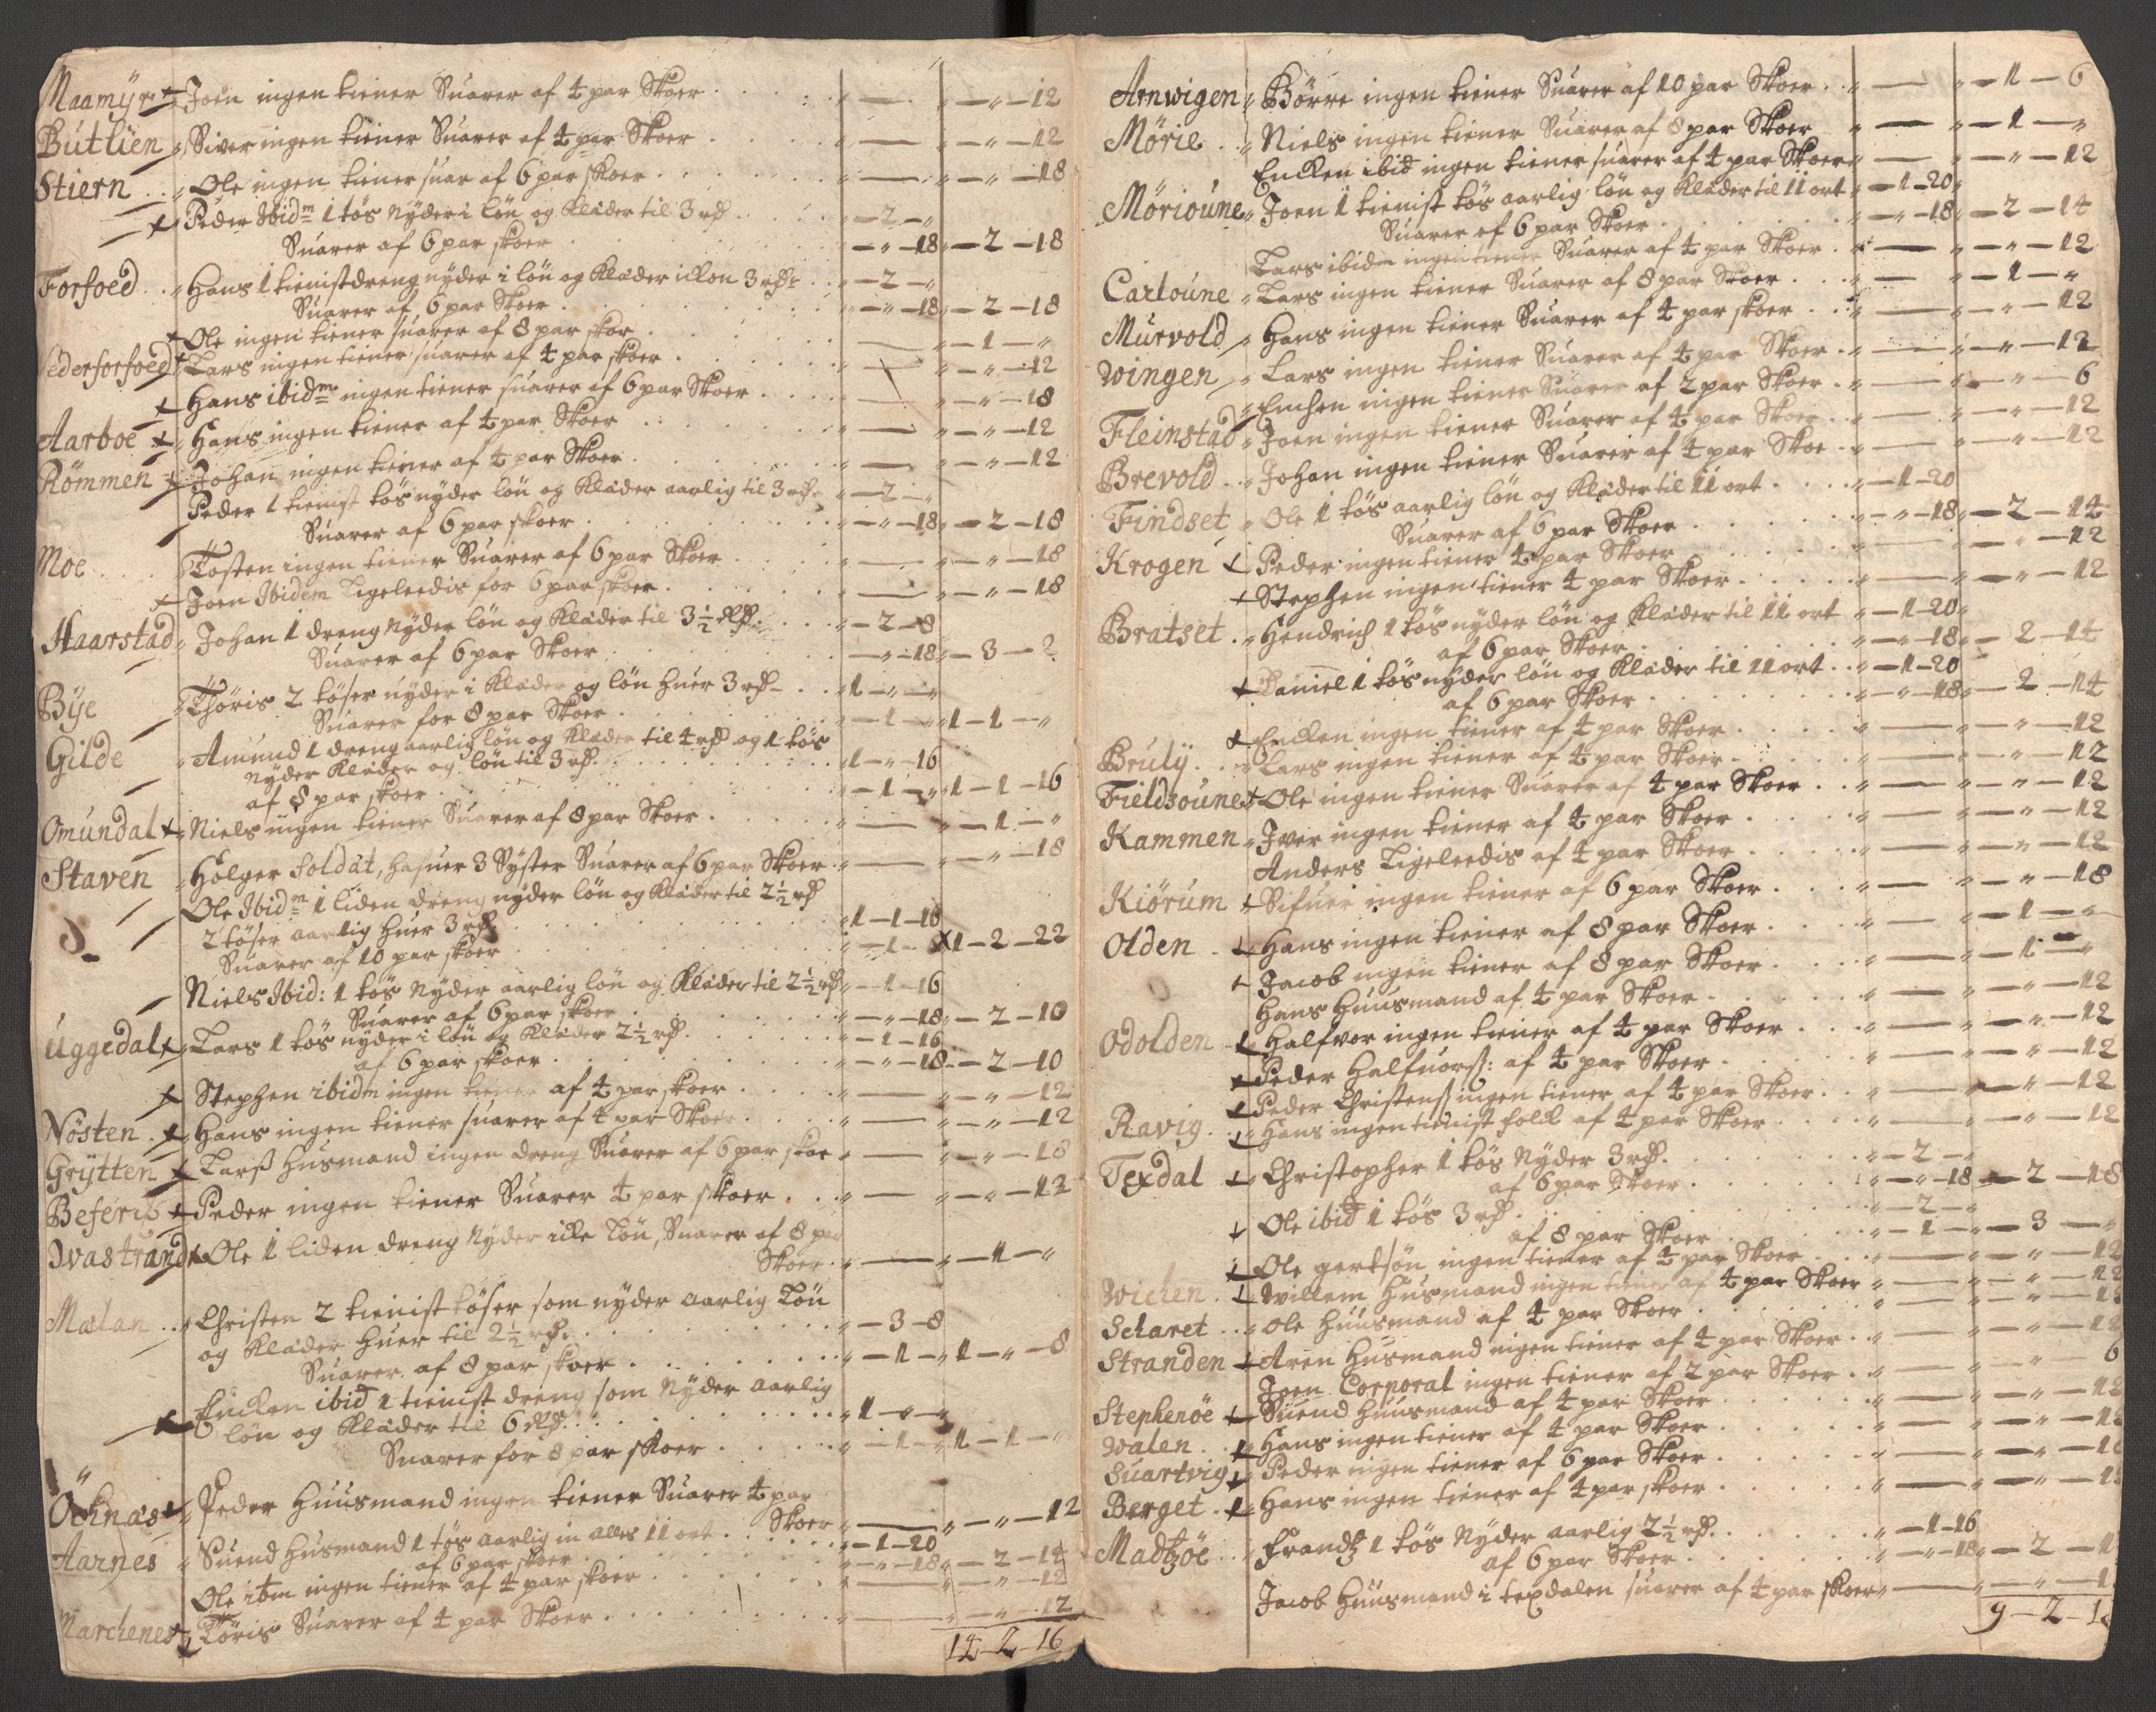 Maamyr Joen ingen tiener Suarer af 4 par Skoer . . . " — " — " — 12
Butlien Siver ingen tiener Suarer af 4 par Skoer . . . " — " — " — 12
Stiern Ole ingen tiener suar af 6 par skoer . . . " — " — " — 18
Peder Ibidm 1 tös Nyder i lön og Klæder til 3 rd . . . " — 2 — "
Suarer af 6 par skoer . . . " — " — 18 " — 2 — 18
Forfoed Hans 1 tienistdreng nyder i lön og Klæder 3 rd " — 2 — "
Suarer af 6 par Skoer . . . " — " — 18 " — 2 — 18
Ole ingen tiener suarer af 8 par skor . . . " — 1 — "
ederforfoed Lars ingen tiener suarer af 4 par skoer . . . " — " — 12
Hans ibidm ingen tiener suarer af 6 par Skoer . . . " — " — " — 18
Aarboe Hans ingen tiener af 4 par Skoer . . . " — " — " — 12
Römmen Johan ingen tiener af 4 par Skoer . . . " — " — " — 12
Peder 1 tienist tös nyder lön og Klæder aarlig til 3 rd " — 2 — "
Suarer af 6 par skoer . . . " — " — 18 " — 2 — 18
Moe Tosten ingen tiener Suarer af 6 par Skoer . . . " — " — " — 18
Joen Ibidem Ligeleedis for 6 par skoer . . . " — " — " — 18
Haarstad Johan 1 dreng Nyder lön og Klæder til 3½ rd . . . " — 2 — 8
Suarer af 6 par Skoer . . . " — " — 18 " — 3 — 2
Bye Thöris 2 töser nyder i Klæder og lön huer 3 rd . . . " 1 — " — "
Suarer for 8 par Skoer . . . " — 1 — " 1 — 1 — "
Gilde Amund 1 dreng aarlig lön og Klæder til 4 rd og 1 tös
Nyder Klæder og lön til 3 rd . . . " 1 — " — 16
af 8 par skoer . . . " — 1 — " 1 — 1 — 16
Omundal Niels ingen tiener Suarer af 8 par Skoer . . . " — " — 1 — "
Staven Holger Soldat, hafuer 3 Syster Suarer af 6 par Skoer " — " — " — 18
Ole Ibidm 1 liden dreng nyder lön og Klæder til 2½ rd
2 töser aarlig huer 3 rd . . . " 1 — 1 — 16
Suarer af 10 par skoer " — 1 — 1 — 2 — 22
Niels Ibid: 1 tös Nyder aarlig lön og Klæder til 2½ rd " — 1 — 16
Suarer af 6 par skoer . . . " — " — 18 " — 2 — 10
Uggedal Lars 1 tös nyder i lön og Klæder 2½ rd . . . " — 1 — 16
af 6 par skoer . . . " — " — 18 — 2 — 10
Stephen ibidm ingen tiener af 4 par skoer . . . " — " — " — 12
Nösten Hans ingen tiener suarer af 4 par Skoer . . . " — " — " — 12
Grÿtten Larss Husmand ingen dreng Suarer af 6 par skoe " — " — " — 18
Peder ingen tiener Suarer 4 par skoer . . . " — " — " — 12
Ole 1 liden dreng Nyder icke Lön, Suarer af 8 par
Skoer . " — " — 1 — "
Mælan Christen 2 tienist töser som nyder aarlig Lön
og Klæder huer til 2½ rd. . . . " — 3 — 8
Suarer af 8 par skoer . . . " — 1 — " 1 — " — 8
Encken ibid 1 tienist dreng som Nyder aarlig
lön og Klæder til 6 rd. . . . " 1 — " — "
Suarer for 8 par skoer . . . " — 1 — " 1 — 1 — "
Peder Huusmand ingen tiener Suarer 4 par
Skoer " — " — " — 12
Aarnes Suend Husmand 1 tös aarlig in alles 11 ort . . " — 1 — 20
af 6 par skoer . . . " — " — 18 " — 2 — 14
Ole ibm ingen tiener af 4 par skoer . . . " — " — " — 12
Marchenes Töris Suarer af 4 par Skoer . . . " — " — " — 12
14 — 2 — 16
Arnwigen Börre ingen tiener Suarer af 10 par Skoer . . " — " — 1 — 6
Mörie Niels ingen tiener Suarer af 8 par Skoer " — " — 1 — "
Encken ibid ingen tiener suarer af 4 par Skoer " — " — " — 12
Mörioune Joen 1 tienist tös aarlig lön og Klæder til 11 ort " — 1 — 20
Suarer af 6 par Skoer . . . " — " — 18 " — 2 — 14
Lars ibidm ingen tiener Suarer af 4 par Skoer . " — " — " — 12
Carloune Lars ingen tiener Suarer af 8 par Skoer . . . " — " — 1 — "
Murvold Hans ingen tiener Suarer af 4 par skoer . . " — " — " — 12
Wingen Lars ingen tiener Suarer af 4 par Skoer . " — " — " — 12
Enchen ingen tiener Suarer af 2 par Skoer . " — " — " — 6
Fleinstad Joen ingen tiener Suarer af 4 par Skoer . . " — " — " — 12
Brevold Johan ingen tiener Suarer af 4 par Skoe . " — " — " — 12
Findset Ole 1 tös aarlig lön og Klæder til 11 ort . . . " — 1 — 20
Suarer af 6 par Skoer . . . " — " — 18 " — 2 — 14
Krogen Peder ingen tiener 4 par Skoer . . . " — " — " — 12
Stephen ingen tiener 4 par Skoer . . . " — " — " — 12
Bratset Hendrich 1 tös nyder lön og Klæder til 11 ort " — 1 — 20
af 6 par Skoer . . . " — " — 18 " — 2 — 14
Daniel 1 tös nyder lön og Klæder til 11 ort . . " — 1 — 20
af 6 par Skoer . . . " — " — 18 " — 2 — 14
Encken ingen tiener af 4 par Skoer . . . " — " — " — 12
Bruly Lars ingen tiener af 4 par Skoer . . . " — " — " — 12
Fieldsounes Ole ingen tiener Suarer af 4 par Skoer . . " — " — " — 12
Kammen Iver ingen tiener af 4 par Skoer . . . " — " — " — 12
Anders Ligeleedis af 4 par Skoer . . . " — " — " — 12
Kiörum Sifuer ingen tiener af 6 par Skoer . . . " — " — " — 18
Olden Hans ingen tiener af 8 par Skoer . . . " — " — 1 — "
Jacob ingen tiener af 8 par Skoer . . . " — " — 1 — "
Hans Huusmand af 4 par Skoer . . . " — " — " — 12
Odolden Halfvor ingen tiener af 4 par Skoer . . . " — " — " — 12
Peder Halfuorss: af 4 par Skoer . . . " — " — " — 12
Peder Christenss ingen tiener af 4 par Skoer . . " — " — " — 12
Ravig Hans ingen tienist folck af 4 par Skoer . . . " — " — " — 12
Texdal Christopher 1 tös Nyder 3 rd. . . . " — 2 — "
af 6 par Skoer . . . " — " — 18 " — 2 — 18
Ole ibid 1 tös 3 rd . . . " — 2 — "
af 8 par Skoer . . . " — 1 — " — 3 — "
Ole gertsön ingen tiener af 4 par Skoer . . . " — " — " — 12
Wichen Willem Husmand ingen tiener af 4 par Skoer " — " — " — 12
Scharet Ole Huusmand af 4 par Skoer . . . " — " — " — 12
Stranden Aren Husmand ingen tiener af 4 par Skoer . " — " — " — 12
Joen Corporal ingen tiener af 2 par Skoer . . " — " — " 6
Stephenöe Suend Huusmand af 4 par Skoer . . . " — " — " — 12
Walen Hans ingen tiener af 4 par Skoer . . . " — " — " — 12
Suartvig Peder ingen tiener af 6 par Skoer . . . " — " — " — 1
Berget Hans ingen tiener af 4 par skoer . . . " — " — " — 1
Madtzöe Frandtz 1 tös Nyder aarlig 2½ rd. . . . " — 1 — 16
af 6 par Skoer . . . " — " — 18 " — 2 — 1
Jacob Huusmand i texdalen suarer af 4 par skoer " — " — " — 1
9 — 2 — 1